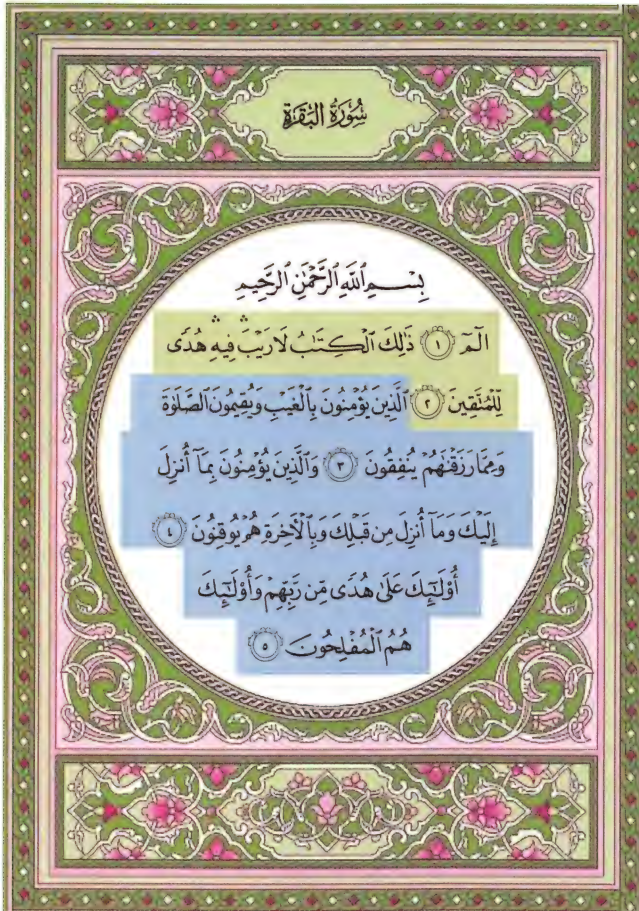 سُورَةُ البَقَرَة
بِسْمِ ٱللَّهِ ٱلرَّحْمَٰنِ ٱلرَّحِيمِ
الٓمٓ ١ ذَٰلِكَ ٱلْكِتَٰبُ لَا رَيْبَ ۛ فِيهِ ۛ هُدًى
لِّلْمُتَّقِينَ ٢ ٱلَّذِينَ يُؤْمِنُونَ بِٱلْغَيْبِ وَيُقِيمُونَ ٱلصَّلَوٰةَ
وَمِمَّا رَزَقْنَٰهُمْ يُنفِقُونَ ٣ وَٱلَّذِينَ يُؤْمِنُونَ بِمَآ أُنزِلَ
إِلَيْكَ وَمَآ أُنزِلَ مِن قَبْلِكَ وَبِٱلْءَاخِرَةِ هُمْ يُوقِنُونَ ٤
أُو۟لَٰٓئِكَ عَلَىٰ هُدًى مِّن رَّبِّهِمْ وَأُو۟لَٰٓئِكَ
هُمُ ٱلْمُفْلِحُونَ ٥